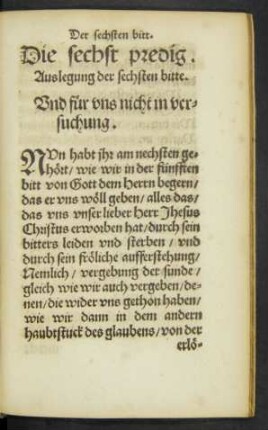 Der sechsten bitt.
Die sechst predig.
Auslegung der sechsten bitte.
Vnd für vns nicht in ver-
suchung.
NVn habt jhr am nechsten ge-
hört/ wie wir in der fünfften
bitt von Gott dem Herrn begern/
das er vns wöll geben/ alles das/
das vns vnser lieber Herr Jhesus
Christus erworben hat/ durch sein
bitters leiden vnd sterben/ vnd
durch sein fröliche aufferstehung/
Nemlich/ vergebung der sünde/
gleich wie wir auch vergeben/ de-
nen/ die wider vns gethon haben/
wie wir dann in dem andern
haubtstuck des glaubens/ von der
erlö-